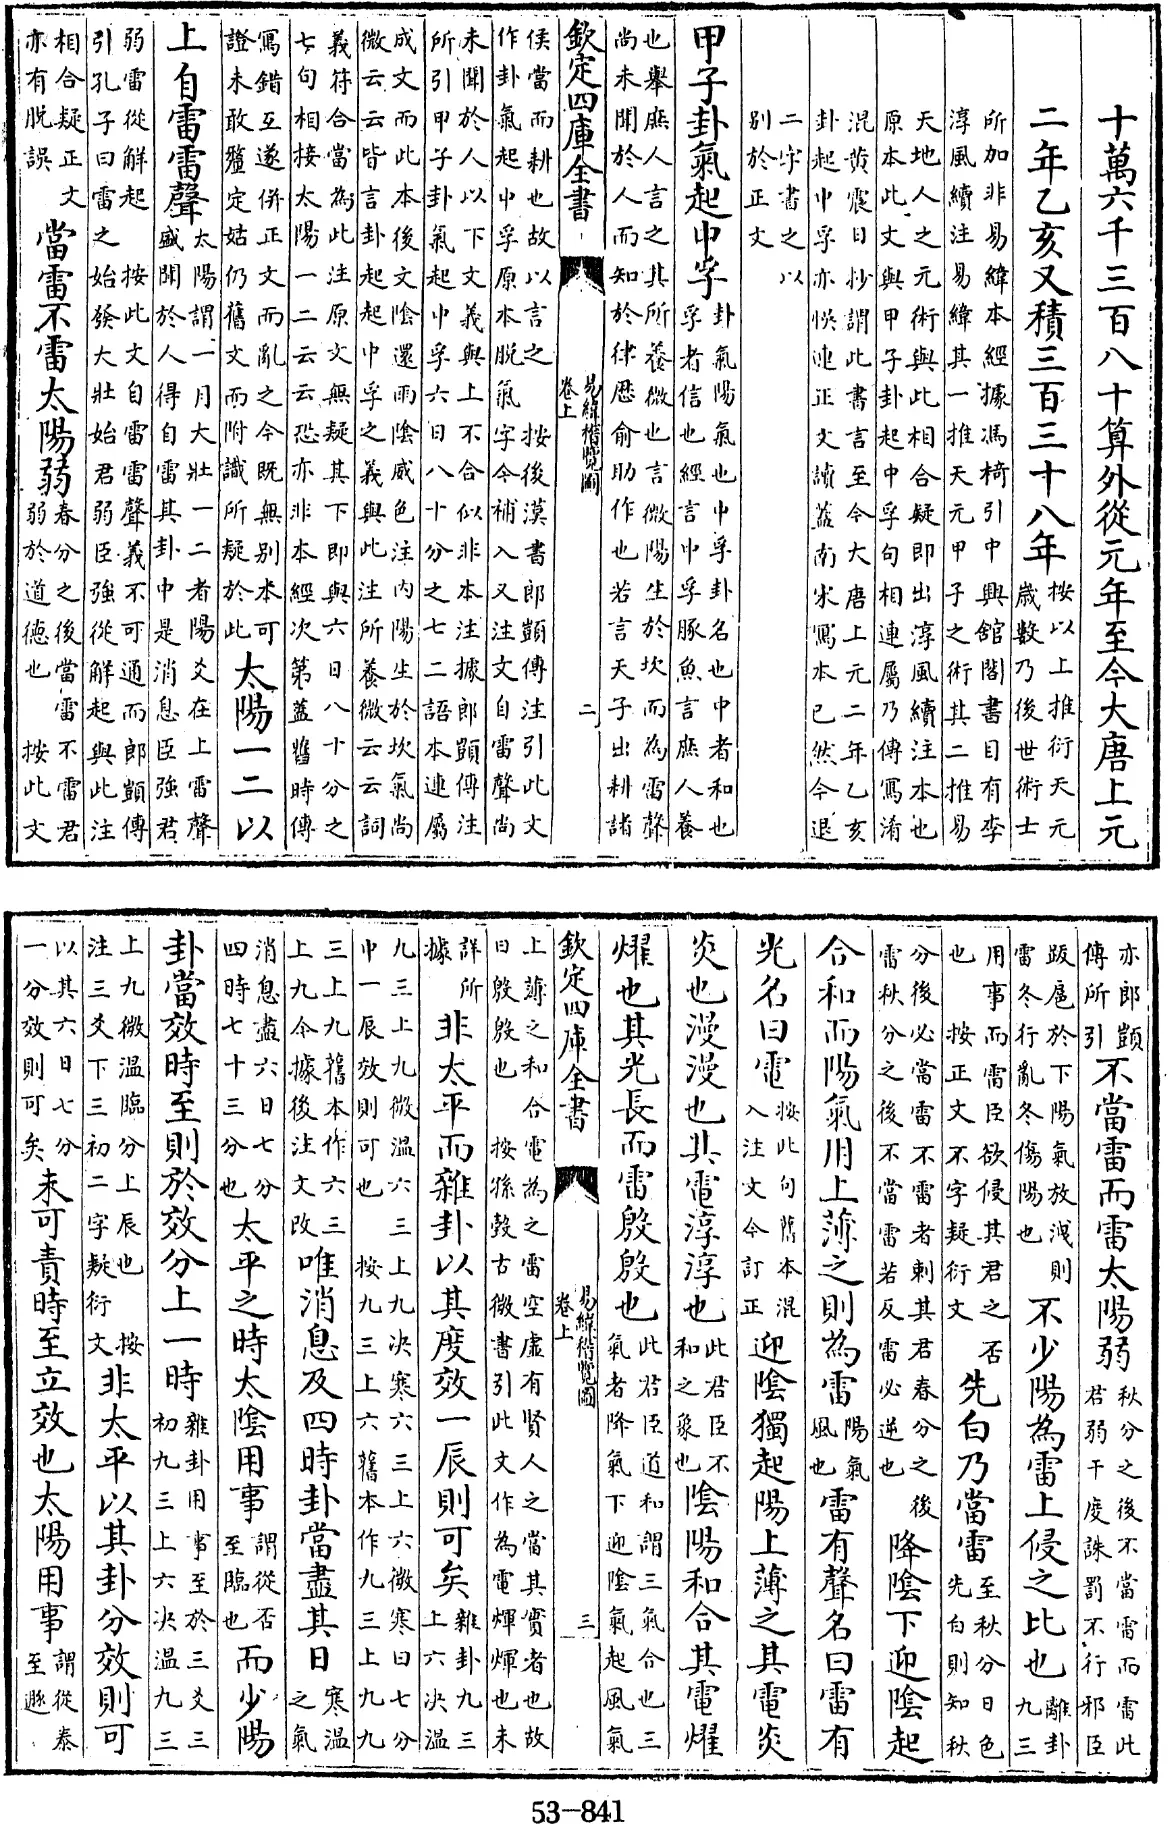 十萬六千三百八十算外從元年至今大唐上元
二年乙亥又積三百三十八年
按以上推衍天元
歲數乃後世術士
所加非易緯本經據馮椅引中興館閣書目有李
淳風續注易緯其一推天元甲子之術其二推易
天地人之元術與此相合疑即出淳風續注本也
原本此文與甲子卦起中孚句相連屬乃傳寫淆
混黄震日抄謂此書言至今大唐上元二年乙亥
卦起中孚亦悮連正文讀葢南宋寫本已然今退
二字書之以
別於正文
甲子卦氣起中孚
卦氣陽氣也中孚卦名也中者和也
孚者信也經言中孚豚魚言庶人養
也舉庶人言之其所養微也言微陽生於坎而為雷聲
尚未聞於人而知於律厯俞助作也若言天子出耕諸
欽定四庫全書
易緯稽覽圖
卷上
二
侯當而耕也故以言之 按後漢書郎顗傳注引此文
作卦氣起中孚原本脱氣字今補入又注文自雷聲尚
未聞於人以下文義與上不合似非本注據郎顗傳注
所引甲子卦氣起中孚六日八十分之七二語本連屬
成文而此本後文陰還雨陰威色注内陽生於坎氣尚
微云云皆言卦起起中孚之義與此注所養微云云詞
義符合當為此注原文無疑其下即與六日八十分之
七句相接太陽一二云云恐亦非本經次第葢舊時傳
寫錯互遂併正文而亂之今既無別本可
證未敢釐定姑仍舊文而附識所疑於此
太陽一二以
上自雷雷聲
太陽謂一月大壯一二者陽爻在上雷聲
盛聞於人得自雷其卦中是消息臣強君
弱雷從解起 按此文自雷雷聲義不可通而郎顗傳
引孔子曰雷之始發大壯始君弱臣強從解起與此注
相合疑正文
亦有脱誤
當雷不雷太陽弱
春分之後當雷不雷君
弱於道德也 按此文
亦郎顗
傳所引
不當雷而雷太陽弱
秋分之後不當雷而雷此
君弱干度誅罰不行邪臣
跋扈於下陽氣放洩則
雷冬行亂冬傷陽也
不少陽為雷上侵之比也
離卦
九三
用事而雷臣欲侵其君之否
也 按正文不字疑衍文
先白乃當雷
至秋分日色
先白則知秋
分後必當雷不雷者刺其君春分之後
雷秋分之後不當雷若反雷必逆也
降陰下迎陰起
合和而陽氣用上薄之則為雷
陽氣
風也
雷有聲名曰雷有
光名曰電
按此句舊本混
入注文今訂正
迎陰獨起陽上薄之其電炎
炎也漫漫也其電淳淳也
此君臣不
和之象也
陰陽和合其電燿
燿也其光長而雷殷殷也
此君臣道和謂三氣合也三
氣者降氣下迎陰氣起風氣
欽定四庫全書
易緯稽覽圖
卷上
三
上薄之和合電為之雷空虚有賢人之當其實者也故
曰殷殷也 按孫瑴古微書引此文作為電煇煇也未
詳所
據
非太平而雜卦以其度效一辰則可矣
雜卦九三
上六决温
九三上九微温六三上九决寒六三上六微寒曰七分
中一辰效則可也 按九三上六舊本作九三上九九
三上九舊本作六三
上九今據後注文改
唯消息及四時卦當盡其日
寒温
之氣
消息盡六日七分
四時七十三分也
太平之時太陰用事
謂從否
至臨也
而少陽
卦當效時至則於效分上一時
雜卦用事至於三爻三
初九三上六决温九三
上九微温臨分上辰也 按
注三爻下三初二字疑衍文
非太平以其卦分效則可
以其六日七分
一分效則可矣
未可責時至立效也太陽用事
謂從泰
至遯
53-841